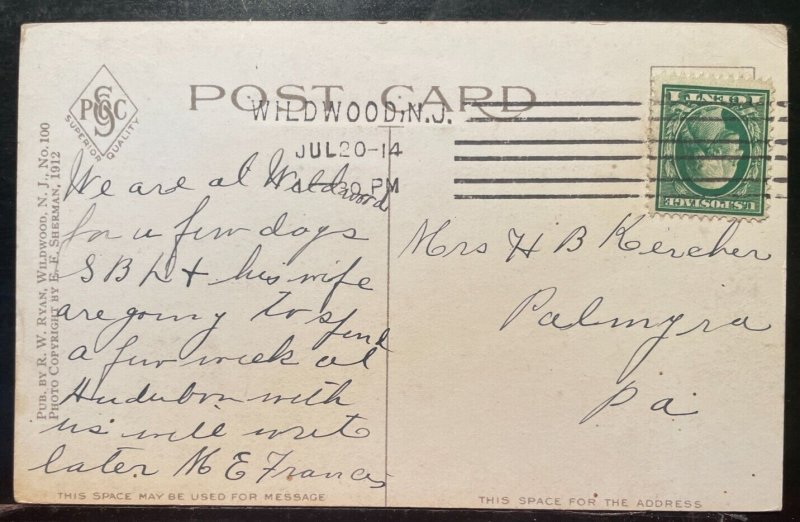 POST CARD
PGC
SUPERIOR QUALITY
PUB. BY R. W. RYAN, WILDWOOD, N. J., No. 100
PHOTO COPYRIGHT BY E. F. SHERMAN, 1912
WILDWOOD, N.J.
JUL 20-14
30 PM
1 CENT 1
U.S. POSTAGE
We are at Wildwood
for a few days
S B L + his wife
are going to spend
a few week at
Audubon with
us will writ
later M E Francis
Mrs H B Kercher
Palmyra
Pa
THIS SPACE MAY BE USED FOR MESSAGE
THIS SPACE FOR THE ADDRESS